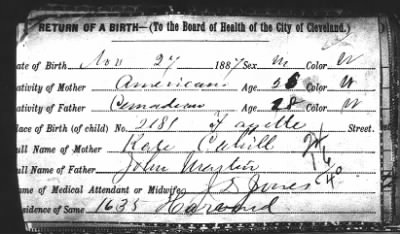 RETURN OF A BIRTH—(To the Board of Health of the City of Cleveland.)
ate of Birth Nov 27 1887 Sex M Color W
ativity of Mother American Age 26 Color W
ativity of Father Canadian Age 28 Color W
lace of Birth (of child) No. 2181 Street.
ull Name of Mother Kate Cahill
ull Name of Father John
ame of Medical Attendant or Midwife J S Jones
esidence of Same 1635 Harvard